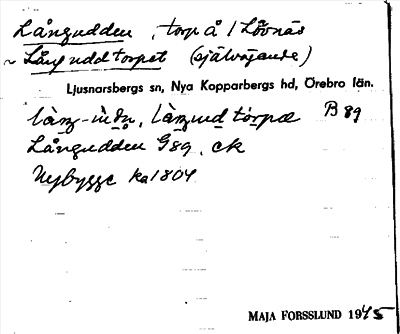 Långudden, torp å / Lövnäs
~ Långuddtorpet (självägande)
Ljusnarsbergs sn, Nya Kopparbergs hd, Örebro län.
làŋ-ùdn, làŋudtórpə B 89
Långudden G89, ck
Nybygge ka 1804
MAJA FORSSLUND 1945